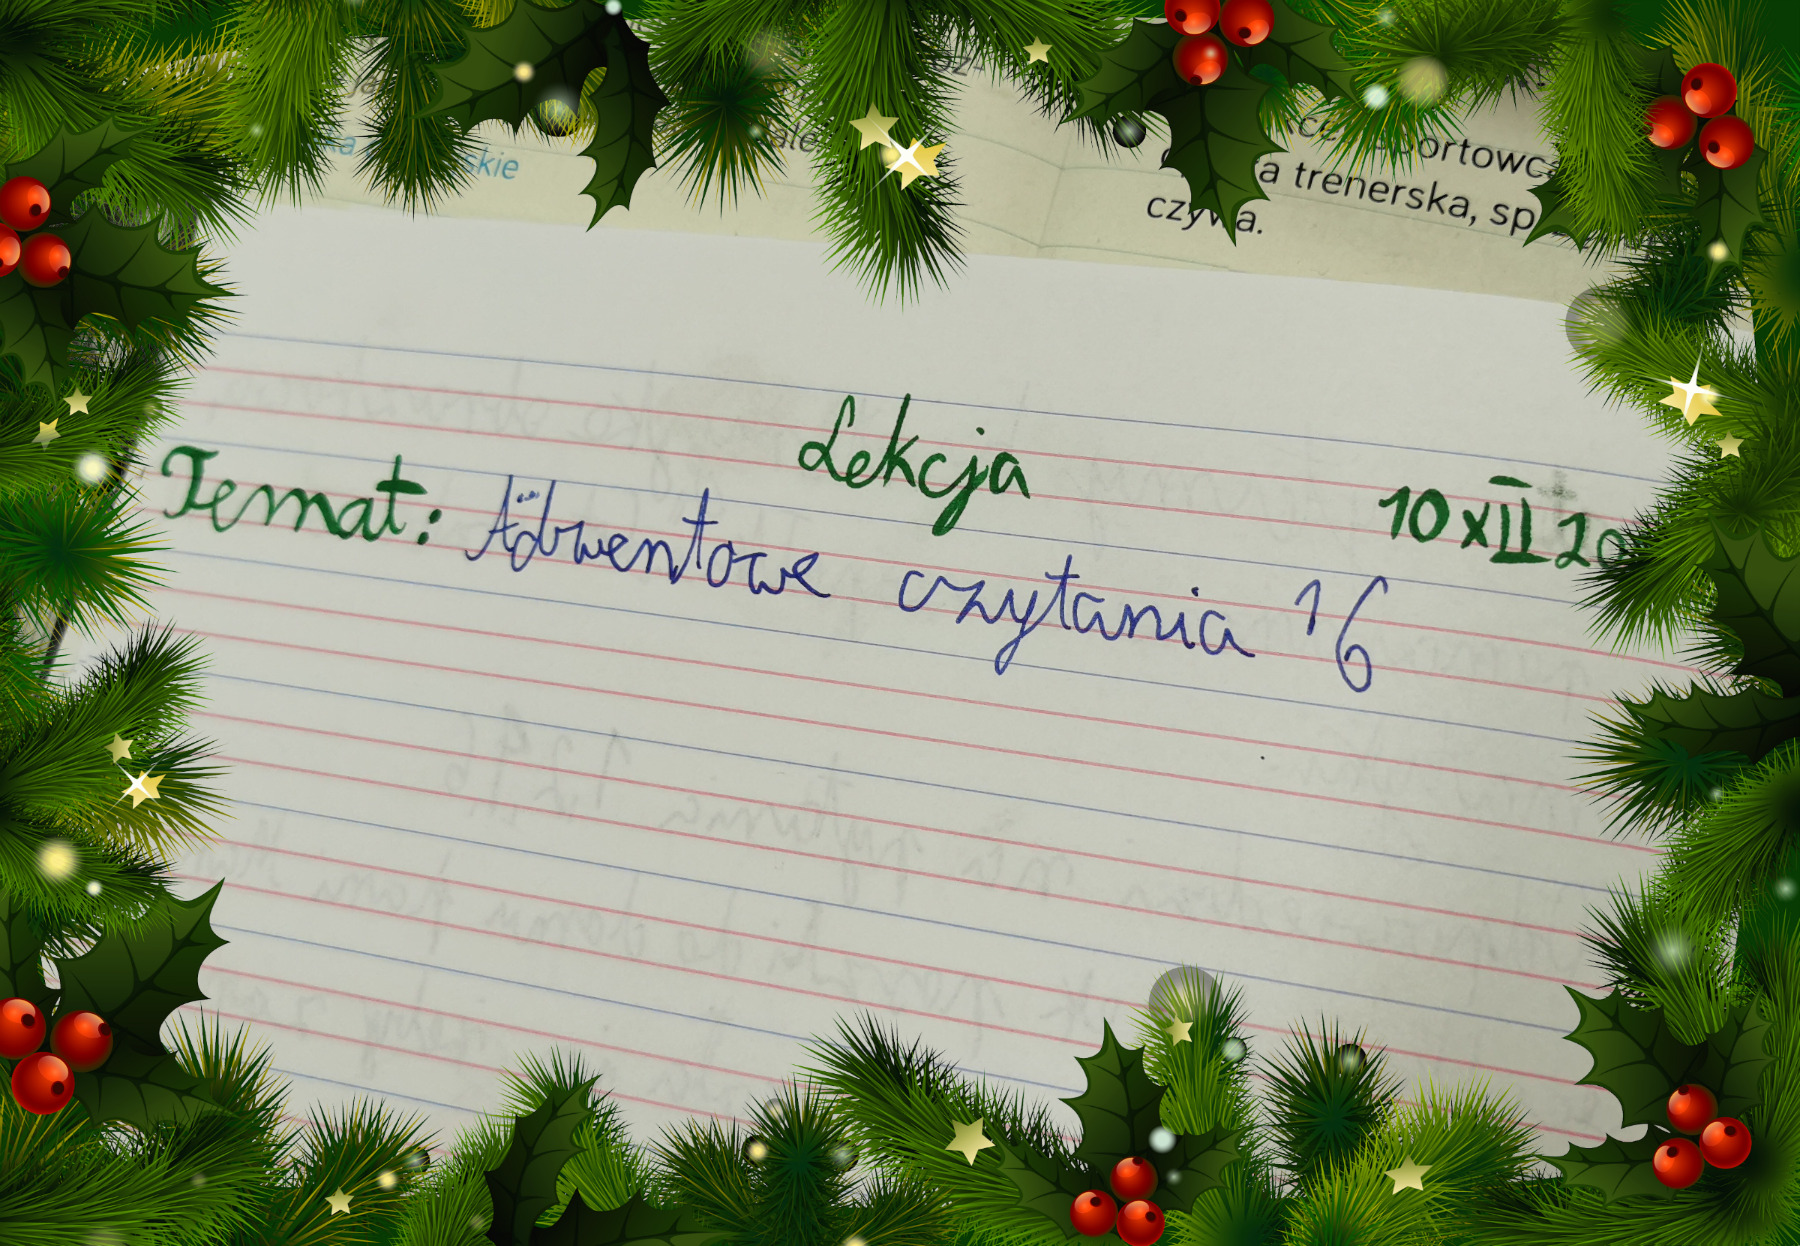 skie
a trenerska, sp
czywa.
Lekcja
10 XII 20
Temat: Adwentowe czytania 16